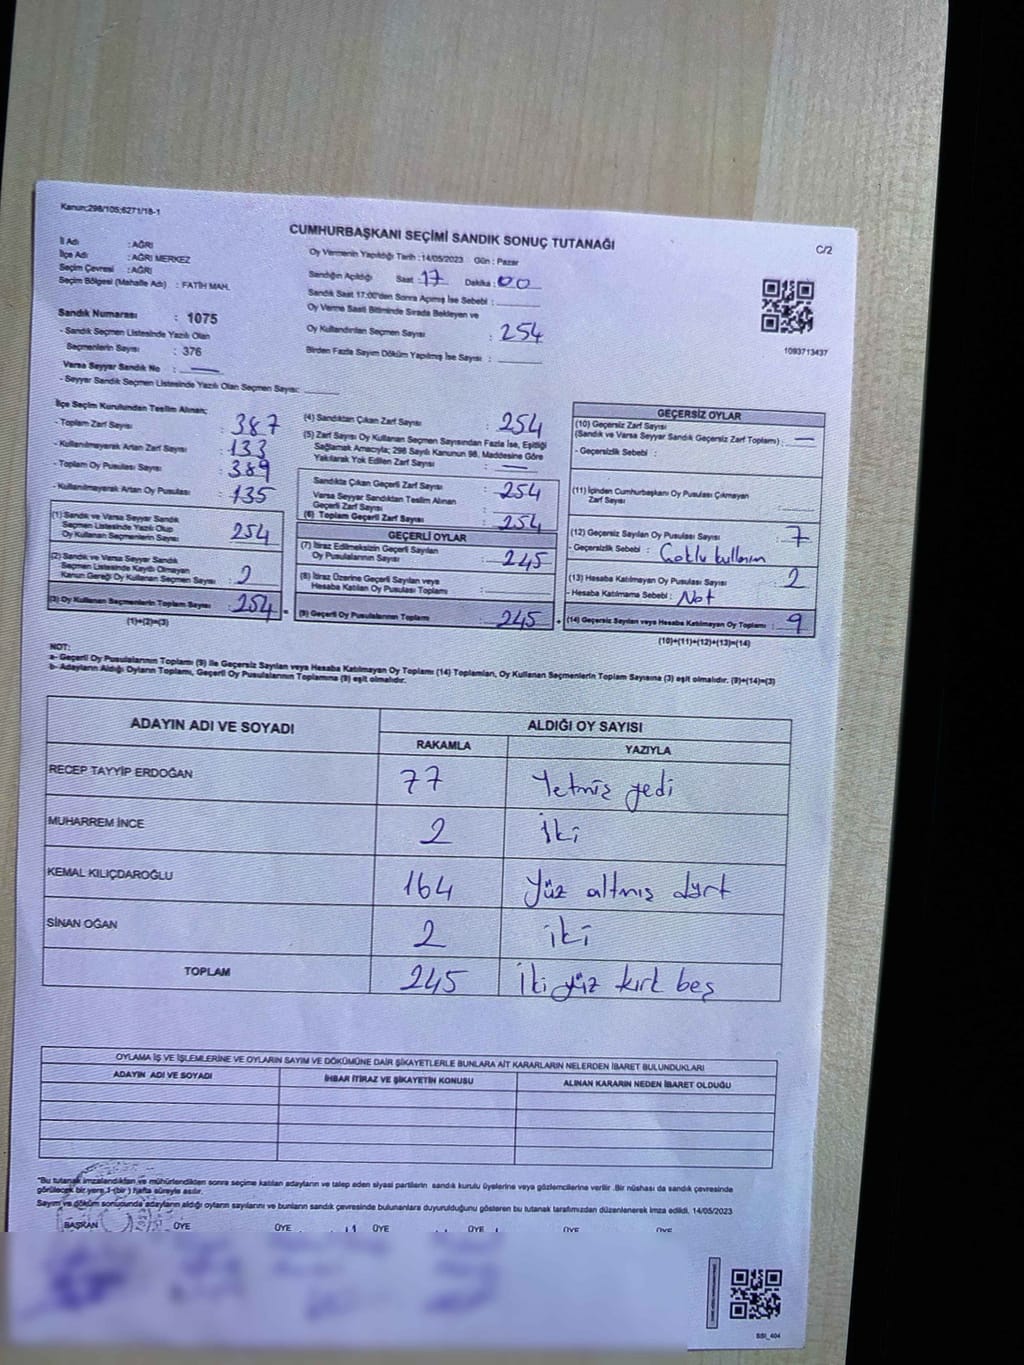 Kanun;298/105;6271/18-1
CUMHURBAŞKANI SEÇİMİ SANDIK SONUÇ TUTANAĞI
C/2
İl Adı : AĞRI
İlçe Adı : AĞRI MERKEZ
Seçim Çevresi : AĞRI
Seçim Bölgesi (Mahalle Adı) : FATİH MAH.
Oy Vermenin Yapıldığı Tarih :14/05/2023 Gün : Pazar
Sandığın Açıldığı Saat : 17 Dakika : 00
Sandık Saat 17:00'den Sonra Açımış İse Sebebi :
Oy Verme Saati Bitiminde Sırada Bekleyen ve
Oy Kullandırılan Seçmen Sayısı : 254
Birden Fazla Sayım Döküm Yapılmış İse Sayısı :
1093713437
Sandık Numarası : 1075
- Sandık Seçmen Listesinde Yazılı Olan
Seçmenlerin Sayısı : 376
Varsa Seyyar Sandık No : —
- Seyyar Sandık Seçmen Listesinde Yazılı Olan Seçmen Sayısı:
İlçe Seçim Kurulundan Teslim Alınan;
- Toplam Zarf Sayısı : 387
- Kullanılmayarak Artan Zarf Sayısı : 133
- Toplam Oy Pusulası Sayısı : 389
- Kullanılmayarak Artan Oy Pusulası : 135
(1) Sandık ve Varsa Seyyar Sandık
Seçmen Listesinde Yazılı Olup
Oy Kullanan Seçmenlerin Sayısı : 254
(2) Sandık ve Varsa Seyyar Sandık
Seçmen Listesinde Kayıtlı Olmayan
Kanun Gereği Oy Kullanan Seçmen Sayısı : 2
(3) Oy Kullanan Seçmenlerin Toplam Sayısı : 254 =
(1)+(2)=(3)
(4) Sandıktan Çıkan Zarf Sayısı : 254
(5) Zarf Sayısı Oy Kullanan Seçmen Sayısından Fazla İse, Eşitliği
Sağlamak Amacıyla; 298 Sayılı Kanunun 98. Maddesine Göre
Yakılarak Yok Edilen Zarf Sayısı : —
Sandıkta Çıkan Geçerli Zarf Sayısı : 254
Varsa Seyyar Sandıktan Teslim Alınan
Geçerli Zarf Sayısı :
(6) Toplam Geçerli Zarf Sayısı : 254
GEÇERLİ OYLAR
(7) İtiraz Edilmeksizin Geçerli Sayılan
Oy Pusulalarının Sayısı : 245
(8) İtiraz Üzerine Geçerli Sayılan veya
Hesaba Katılan Oy Pusulası Toplamı :
(9) Geçerli Oy Pusulalarının Toplamı : 245 +
GEÇERSİZ OYLAR
(10) Geçersiz Zarf Sayısı
(Sandık ve Varsa Seyyar Sandık Geçersiz Zarf Toplamı) : —
- Geçersizlik Sebebi :
(11) İçinden Cumhurbaşkanı Oy Pusulası Çıkmayan
Zarf Sayısı :
(12) Geçersiz Sayılan Oy Pusulası Sayısı : 7
- Geçersizlik Sebebi : Çoklu kullanım
(13) Hesaba Katılmayan Oy Pusulası Sayısı : 2
- Hesaba Katılmama Sebebi : Not
(14) Geçersiz Sayılan veya Hesaba Katılmayan Oy Toplamı : 9
(10)+(11)+(12)+(13)=(14)
NOT:
a- Geçerli Oy Pusulalarının Toplamı (9) ile Geçersiz Sayılan veya Hesaba Katılmayan Oy Toplamı (14) Toplamları, Oy Kullanan Seçmenlerin Toplam Sayısına (3) eşit olmalıdır. (9)+(14)=(3)
b- Adayların Aldığı Oyların Toplamı, Geçerli Oy Pusulalarının Toplamına (9) eşit olmalıdır.
ADAYIN ADI VE SOYADI
ALDIĞI OY SAYISI
RAKAMLA YAZIYLA
RECEP TAYYİP ERDOĞAN 77 Yetmiş yedi
MUHARREM İNCE 2 İki
KEMAL KILIÇDAROĞLU 164 Yüz altmış dört
SİNAN OĞAN 2 iki
TOPLAM 245 İki yüz kırk beş
OYLAMA İŞ VE İŞLEMLERİNE VE OYLARIN SAYIM VE DÖKÜMÜNE DAİR ŞİKAYETLERLE BUNLARA AİT KARARLARIN NELERDEN İBARET BULUNDUKLARI
ADAYIN ADI VE SOYADI İHBAR İTİRAZ VE ŞİKAYETİN KONUSU ALINAN KARARIN NEDEN İBARET OLDUĞU
"Bu tutanak imzalandıktan ve mühürlendikten sonra seçime katılan adayların ve talep eden siyasi partilerin sandık kurulu üyelerine veya gözlemcilerine verilir. Bir nüshası da sandık çevresinde
görülecek bir yere 1 (bir) hafta süreyle asılır.
Sayım ve döküm sonucunda adayların aldığı oyların sayılarını ve bunların sandık çevresinde bulunanlara duyurulduğunu gösteren bu tutanak tarafımızdan düzenlenerek imza edildi. 14/05/2023
BAŞKAN ÜYE ÜYE ÜYE ÜYE ÜYE ÜYE
SSI_404